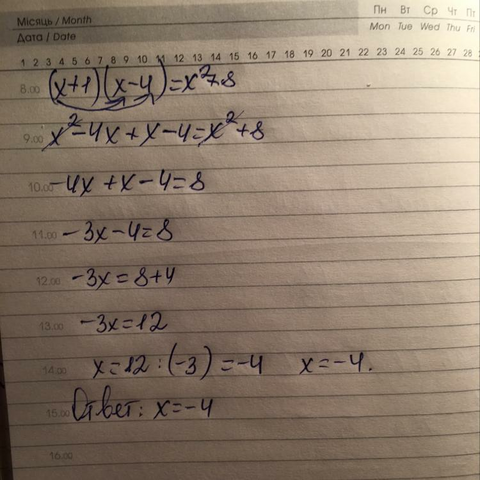 Місяць / Month
Дата / Date
Пн Вт Ср Чт Пт
Mon Tue Wed Thu Fri
1 2 3 4 5 6 7 8 9 10 11 12 13 14 15 16 17 18 19 20 21 22 23 24 25 26 27 28
8.00 (x+1)(x-4)=x²+8
9.00 x²-4x+x-4=x²+8
10.00 -4x+x-4=8
11.00 -3x-4=8
12.00 -3x=8+4
13.00 -3x=12
14.00 x=12:(-3)=-4 x=-4.
15.00 Ответ: x=-4
16.00